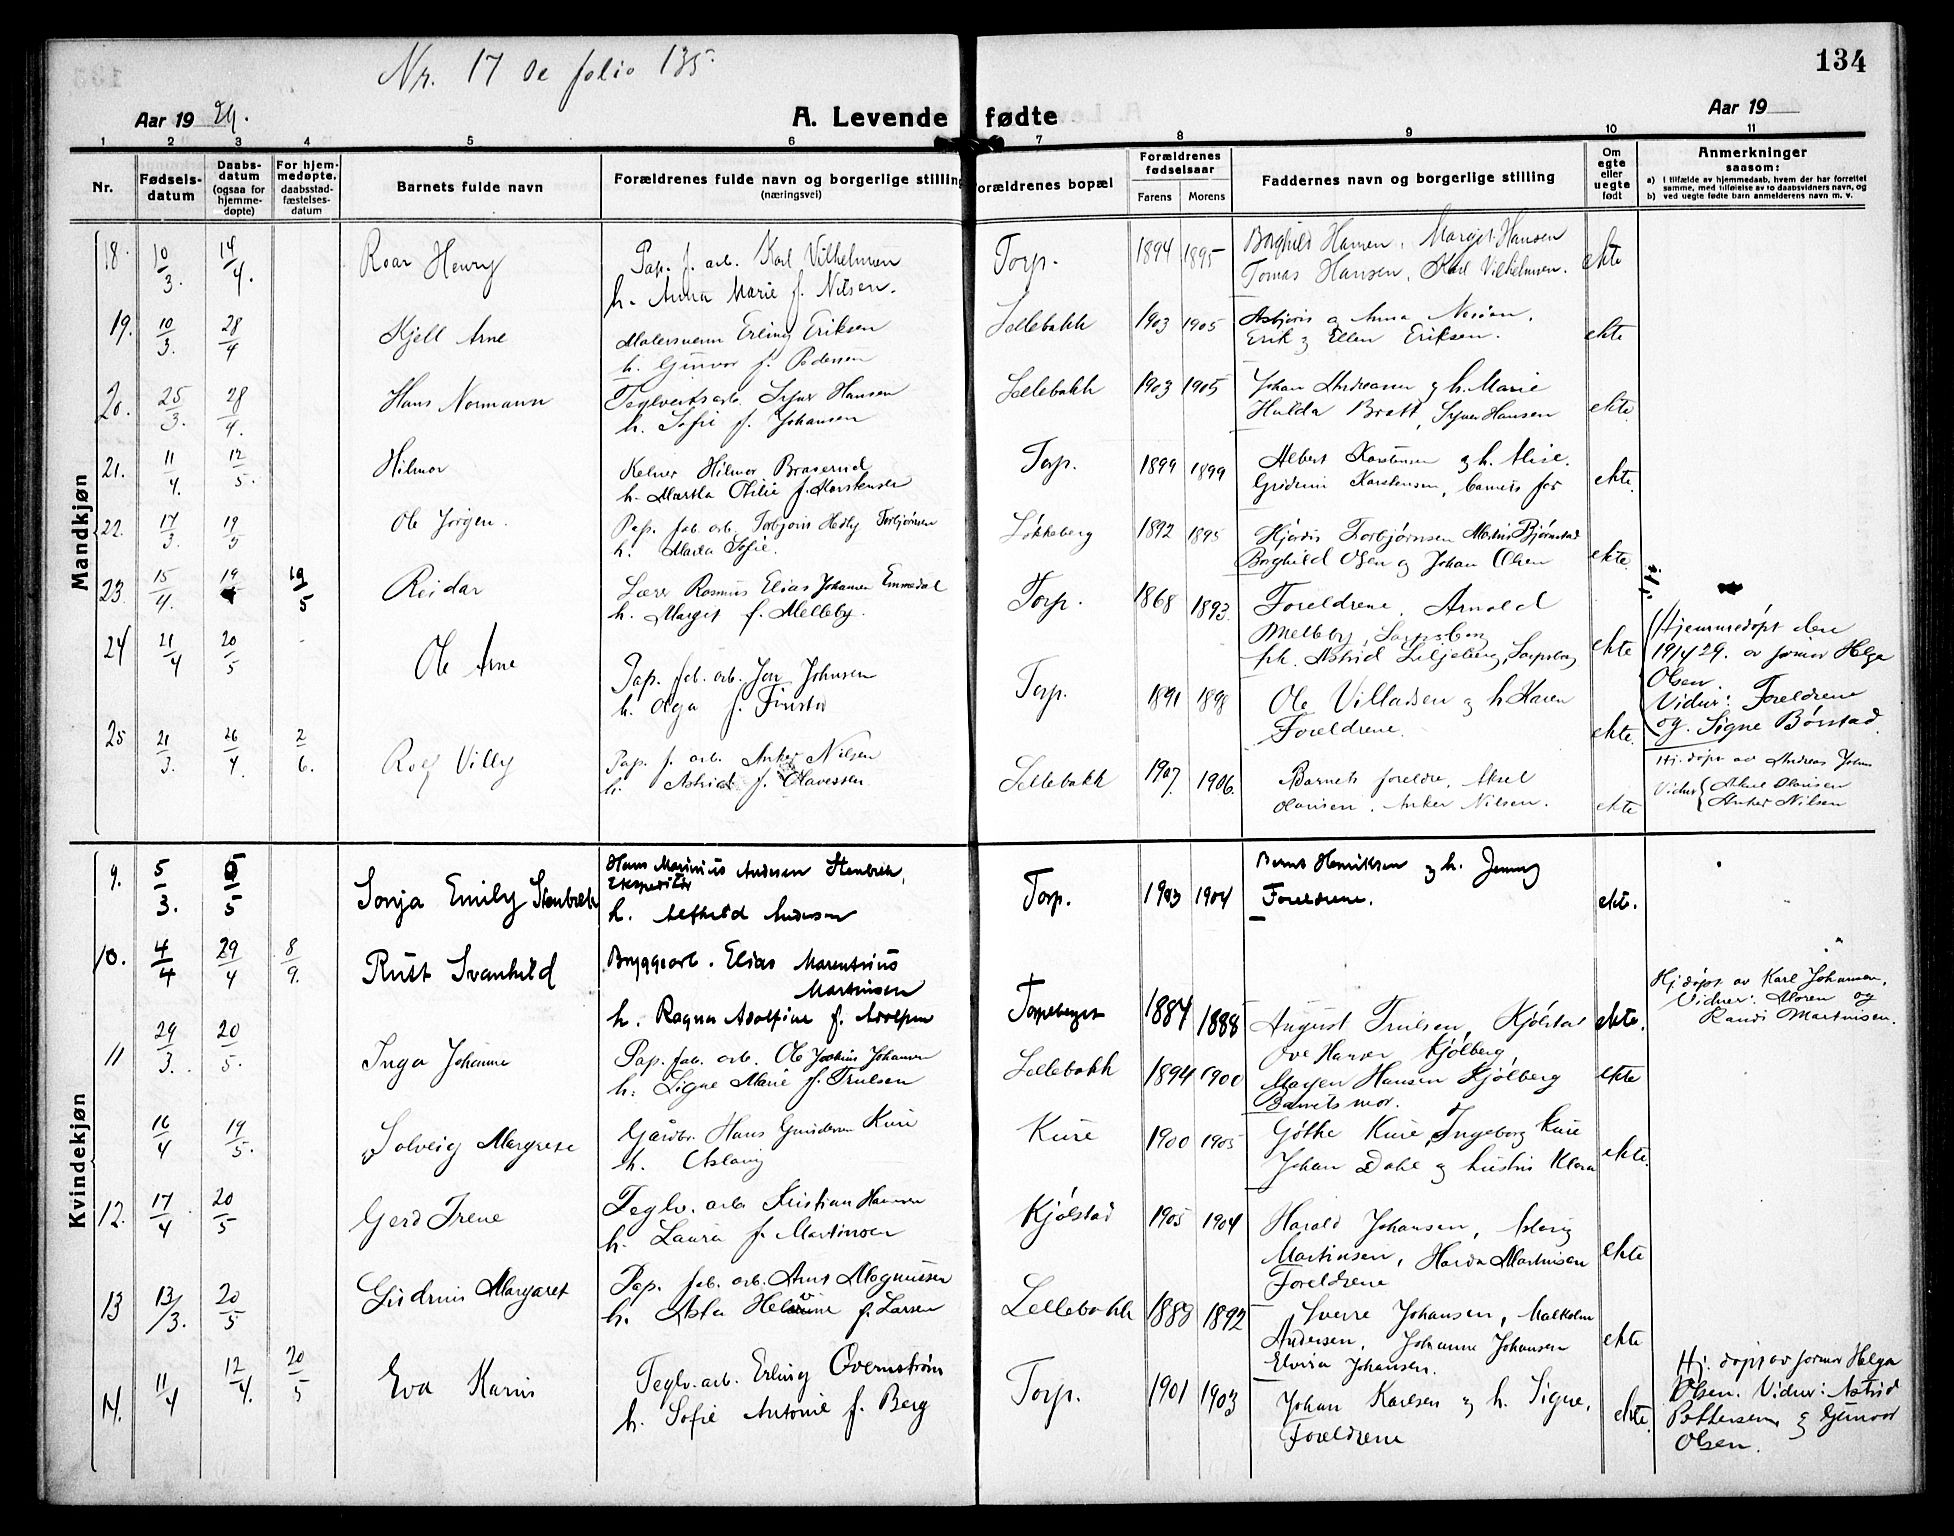 Nr. 17 se folio 135
134
Aar 19 29.
A. Levende fødte
Aar 19
1 2 3 4 5 6 7 8 9 10 11
Nr.
Fødselsdatum
Daabsdatum (ogsaa for hjemmedøpte)
For hjemmedøpte. daabsstadfæstelsesdatum
Barnets fulde navn
Forældrenes fulde navn og borgerlige stilling
(næringsvei)
Forældrenes bopæl
Forældrenes fødselsaar
Farens Morens
Faddernes navn og borgerlige stilling
Om egte eller uegte født
Anmerkninger
saasom:
a) I tilfælde av hjemmedaab, hvem der har forrettet
samme, med tilføielse av to daabsvidners navn, og
b) ved uegte fødte barn anmelderens navn m. v.
Mandkjøn
18. 10/3. 14/4. Roar Henry Pap. f. arb. Karl Vilhelmsen Torp. 1894 1895 Borghild Hansen, Margit Hansen ekte
h. Anna Marie f. Nilsen. Tomas Hansen, Karl Vilhelmsen.
19. 10/3. 28/4 Kjell Arne Malersvenn Erling Eriksen Lellebakk 1903 1905 Asbjørn og Anna ekte
h. Gunvor f. Pedersen Erik og Ellen Eriksen.
20. 25/3. 28/4. Hans Normann Teglverksarb. Syver Hansen Lellebakk 1903 1905 Johan Andreassen og h. Marie ekte
h. Sofie f. Johansen Hulda Bratt, Syver Hansen
21. 11/4. 12/5. Hilmar Kelner Hilmar Braserud Torp. 1899 1899 Albert Karstensen og h. Alise. ekte.
h. Martha Otilie f. Karstensen Gudrun Karstensen, barnets far
22. 17/3. 19/5 Ole Jørgen. Pap. fab. arb. Torbjørn Hedly Torbjørnsen Løkkeberg 1892 1895 Hjørdis Torbjørnsen Martin Bjørnstad ekte.
h. Marta Sofie. Borghild Olsen og Johan Olsen
23. 15/4. 19/4 19/5 Reidar Lærer Rasmus Elias Johansen Emmedal Torp. 1868 1893. Foreldrene, Arnold ekte
h. Margit f. Melleby. Melleby, Sarpsborg
frk. Astrid Liljeberg, Sarpsborg
Hjemmedøpt den
19/4 29. av jormor Helga
Olsen
Vidner: Foreldrene
og. Signe Børstad.
24 21/4 20/5 Ole Arne Pap. fab. arb. Jon Johnsen Torp. 1891 1898 Ole Villadsen og h. Karen ekte.
h. Olga f. Finstad Foreldrene.
25 21/3. 26/4. 2/6. Rolf Villy Pap. f. arb. Anker Nilsen Lellebakk 1907. 1906. Barnets foreldre, Aksel ekte
h. Astrid f. Olavessen Olausen, Anker Nilsen.
Hj. døpt av Andreas Johns
Vidner Aksel Olausen
Anker Nilsen
Kvindekjøn
9. 5/3. 5/5 Sonja Emily Stenbrek Hans Marinius Andersen Stenbrek, Torp. 1903 1904 Bernt Henriksen og h. Jenny ekte.
Ekspeditør
h. Alfhild Andersen Foreldrene.
10. 4/4 29/4 8/9. Rutt Svanhild Bryggearb. Elias Marentsius Torpeberget 1884 1888 ekte.
Martinsen
h. Ragna Adolfine f. Adolfsen
Hj. døpt av Karl Johansen.
Vidner: Maren og
Randi Martinsen.
11 29/3. 20/5. Inga Johanne Pap. fab. arb. Ole Joakim Johansen Lellebakk 1894 1900 August Trulsen, Kjølstad ekte
h. Signe Marie f. Trulsen Ove Hansen Kjølberg
Maren Hansen Kjølberg
Barnets mor.
16/4 19/5. Solveig Margrete Gårdbr. Hans Gundersen Kure Kure 1900 1905 Gøthe Kure, Ingeborg Kure ekte.
h. Aslaug Johan Dahl og hustru Klara
12. 17/4 20/5 Gerd Irene Teglv. arb. Kristian Hansen Kjølstad 1905 1904 Harald Johansen, Aslaug ekte
h. Laura f. Martinsen Martinsen, Harda Martinsen
Foreldrene
13 13/3. 20/5 Gudrun Margaret Pap. fab. arb. Arne Magnussen Lellebakk 1889 1892 Sverre Johansen, Malkolm ekte
h. Asta Helarine f. Larsen Andersen, Johanne Johansen
Elvira Johansen.
14. 11/4 12/4. 20/5 Eva Karin Teglv. arb. Erling Overnstrøm Torp. 1901 1903 Johan Karlsen og h. Signe, ekte.
h. Sofie Antonie f. Berg Foreldrene
Hj. døpt av jormor Helga
Olsen. Vidner: Astrid
Pettersen og Gunvor
Olsen.